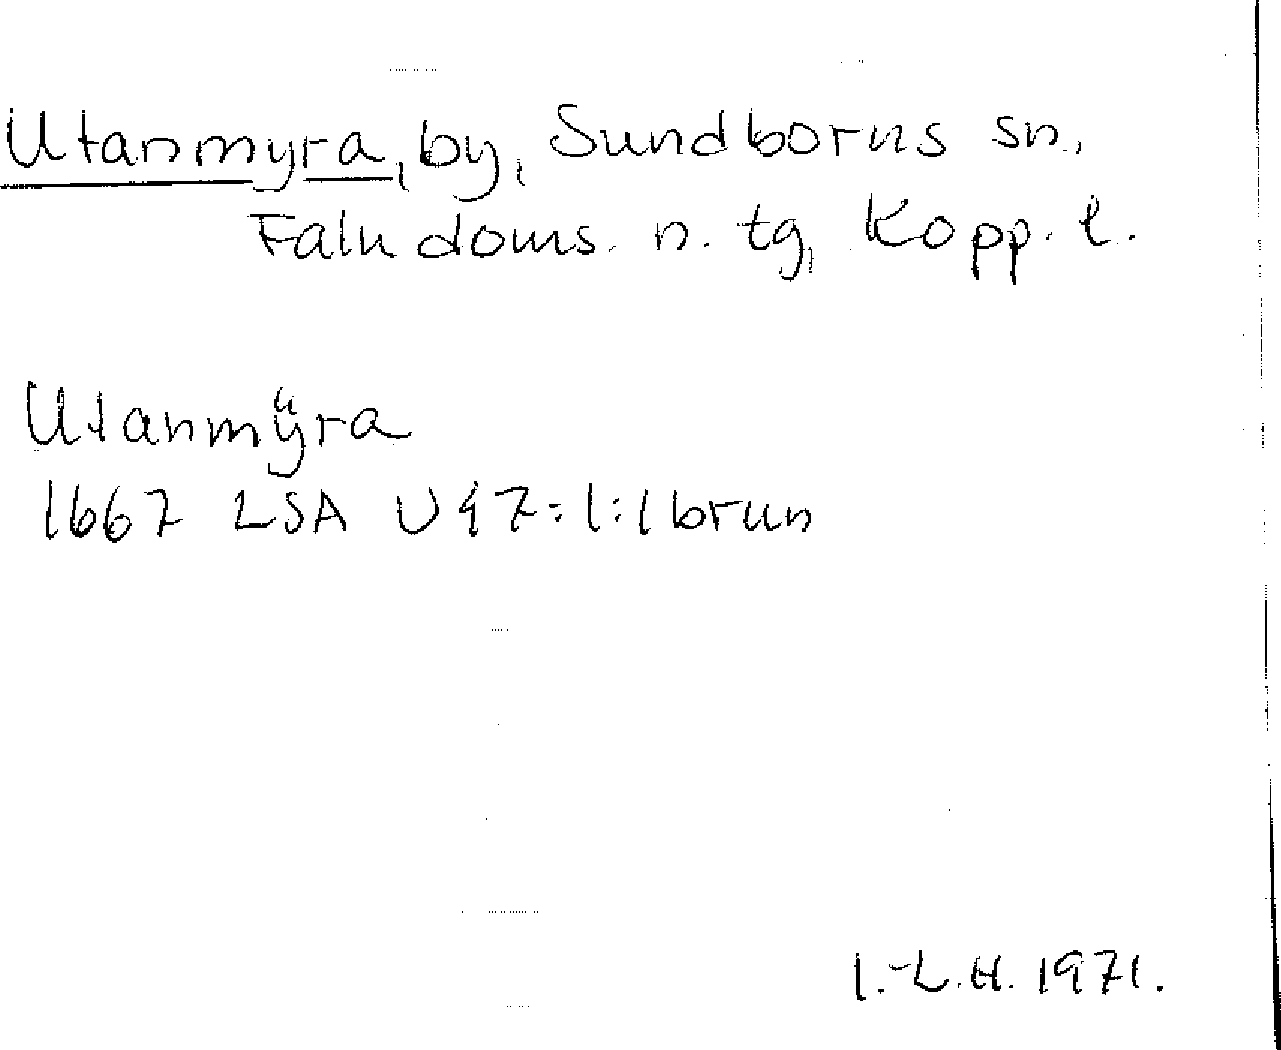 Utanmyra, by, Sundborns sn,
Falu doms. n. tg, Kopp. l.
Utanmÿra
1667 LSA U47:1:1 brun
I.-L.H. 1971.